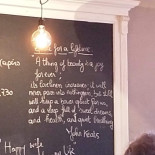 for a lifetime
apéro
A thing of beauty is a joy
forever;
its loveliness increases; it will
never pass into nothingness; but still
will keep a bower quiet for us,
and a sleep full of sweet dreams,
and health, and quiet breathing
John Keats
Happy wife